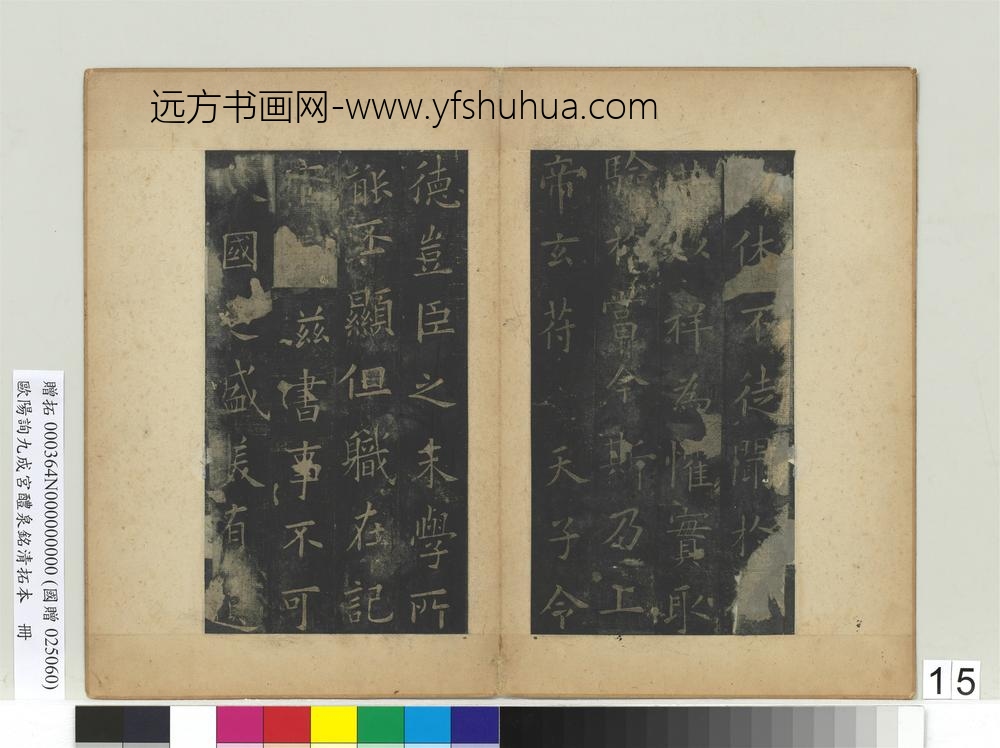 远方书画网-www.yfshuhua.com
休不徒聞於
以祥為懼實取
驗於當今斯乃上
帝玄符天子令
德豈臣之末學所
能丕顯但職在記
茲書事不可
國之盛美有
贈拓 000364N000000000 (國贈 025060)
歐陽詢九成宮醴泉銘清拓本 冊
15